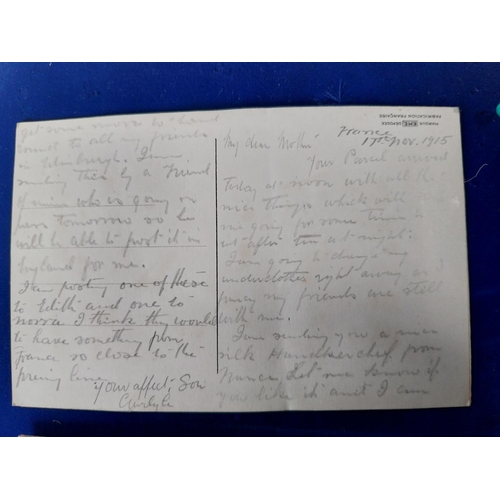 MARQUE EME DÉPOSÉE
FABRICATION FRANÇAISE
France
17th Nov. 1915
My dear Mother
Your Parcel arrived
today at noon with all the
nice things which will
me going for some time to
at night.
I am going to change my
underclothes right away as I
my friends are still
with me.
I am sending you a nice
silk Handkerchief from
France. Let me know if
you like it and I am
get some more to send
to all my friends
in Edinburgh. I am
sending this by a friend
of mine who is going on
pass tomorrow so he
will be able to post it in
England for me.
I am posting one of these
to Edith and one to
Norra I think they would
to have something from
France so close to the
firing line.
Your affect. Son